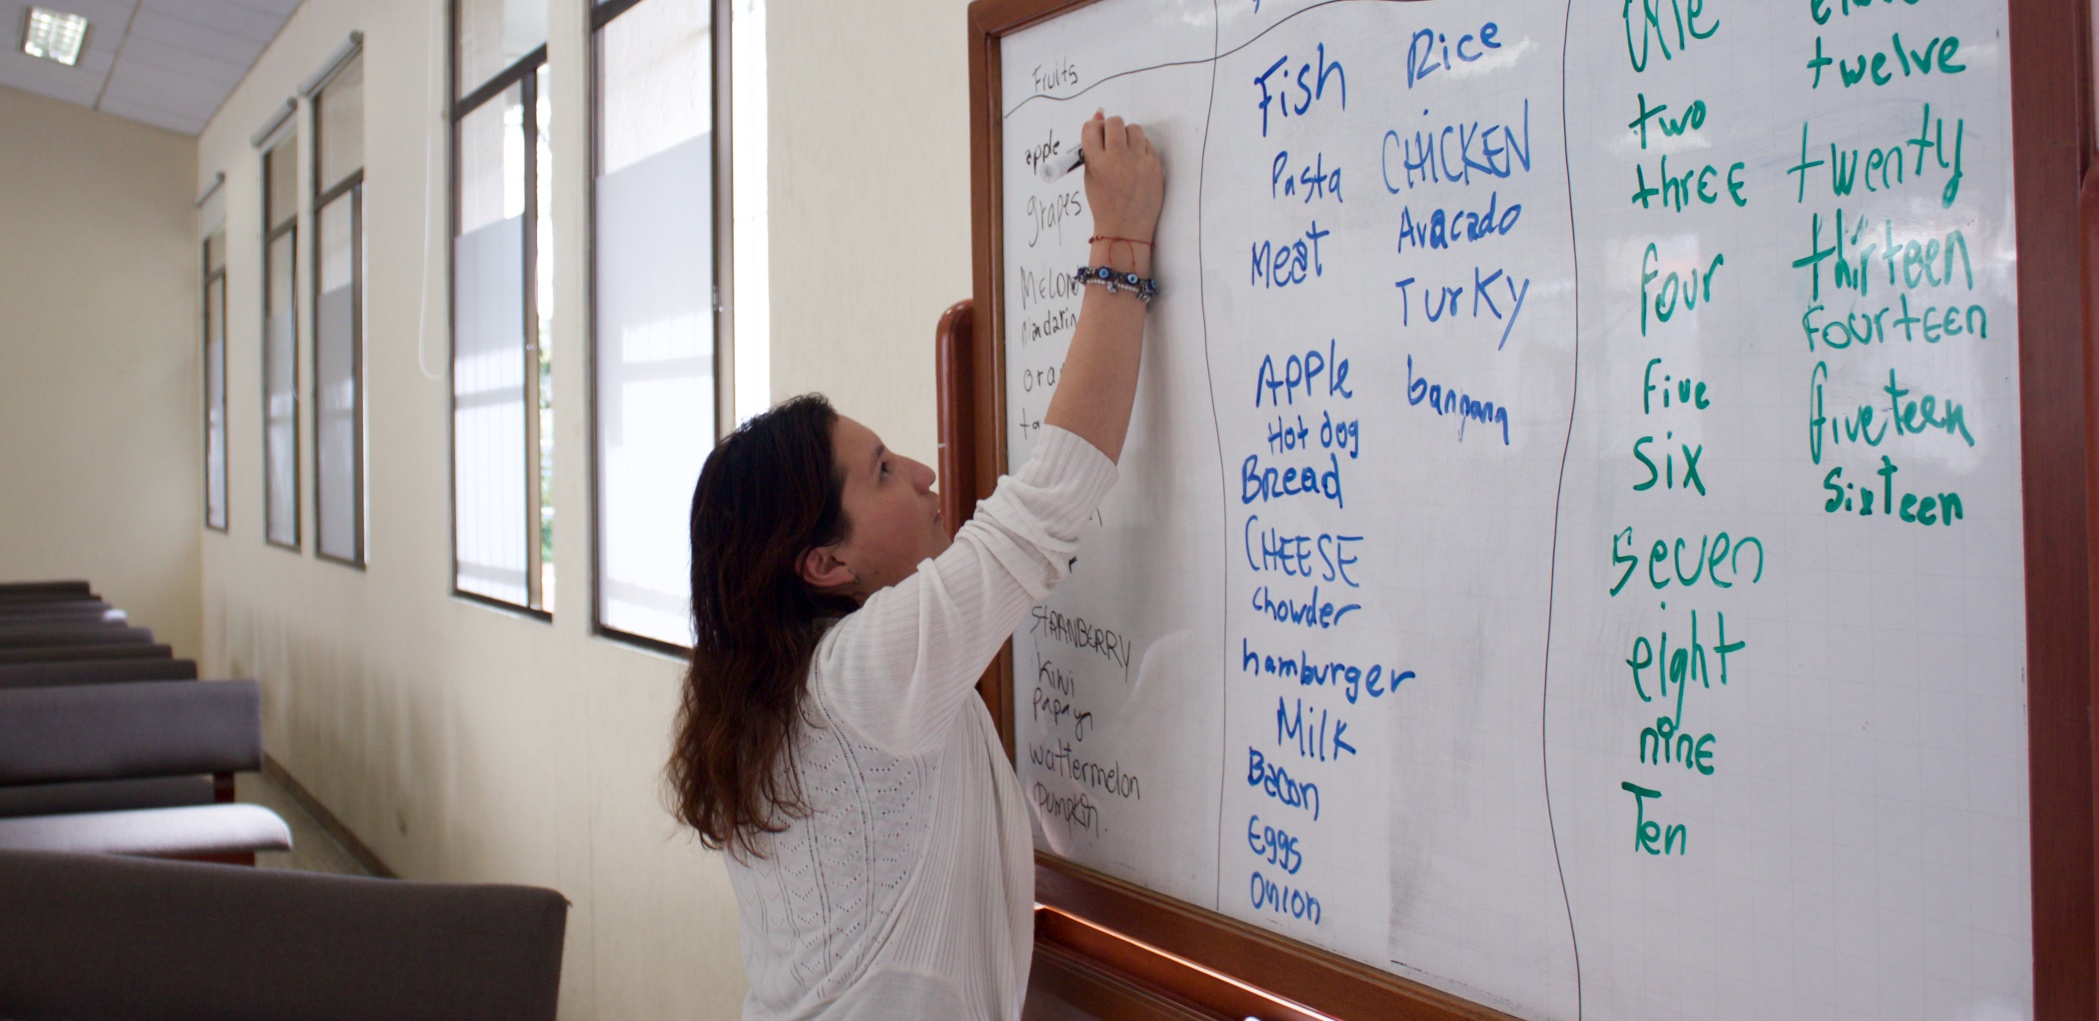 Fruits
apple
grapes
MELON
Mandarin
STRANBERRY
Kiwi
Papaya
wattermelon
Pumpkin.
Fish
Pasta
Meat
APPle
Hot dog
Bread
CHEESE
Chowder
hamburger
Milk
Bacon
Eggs
Onion
Rice
CHICKEN
Avacado
TurKy
two
three
four
five
six
seven
eight
nine
Ten
twelve
twenty
thirteen
Fourteen
fiveteen
Sixteen